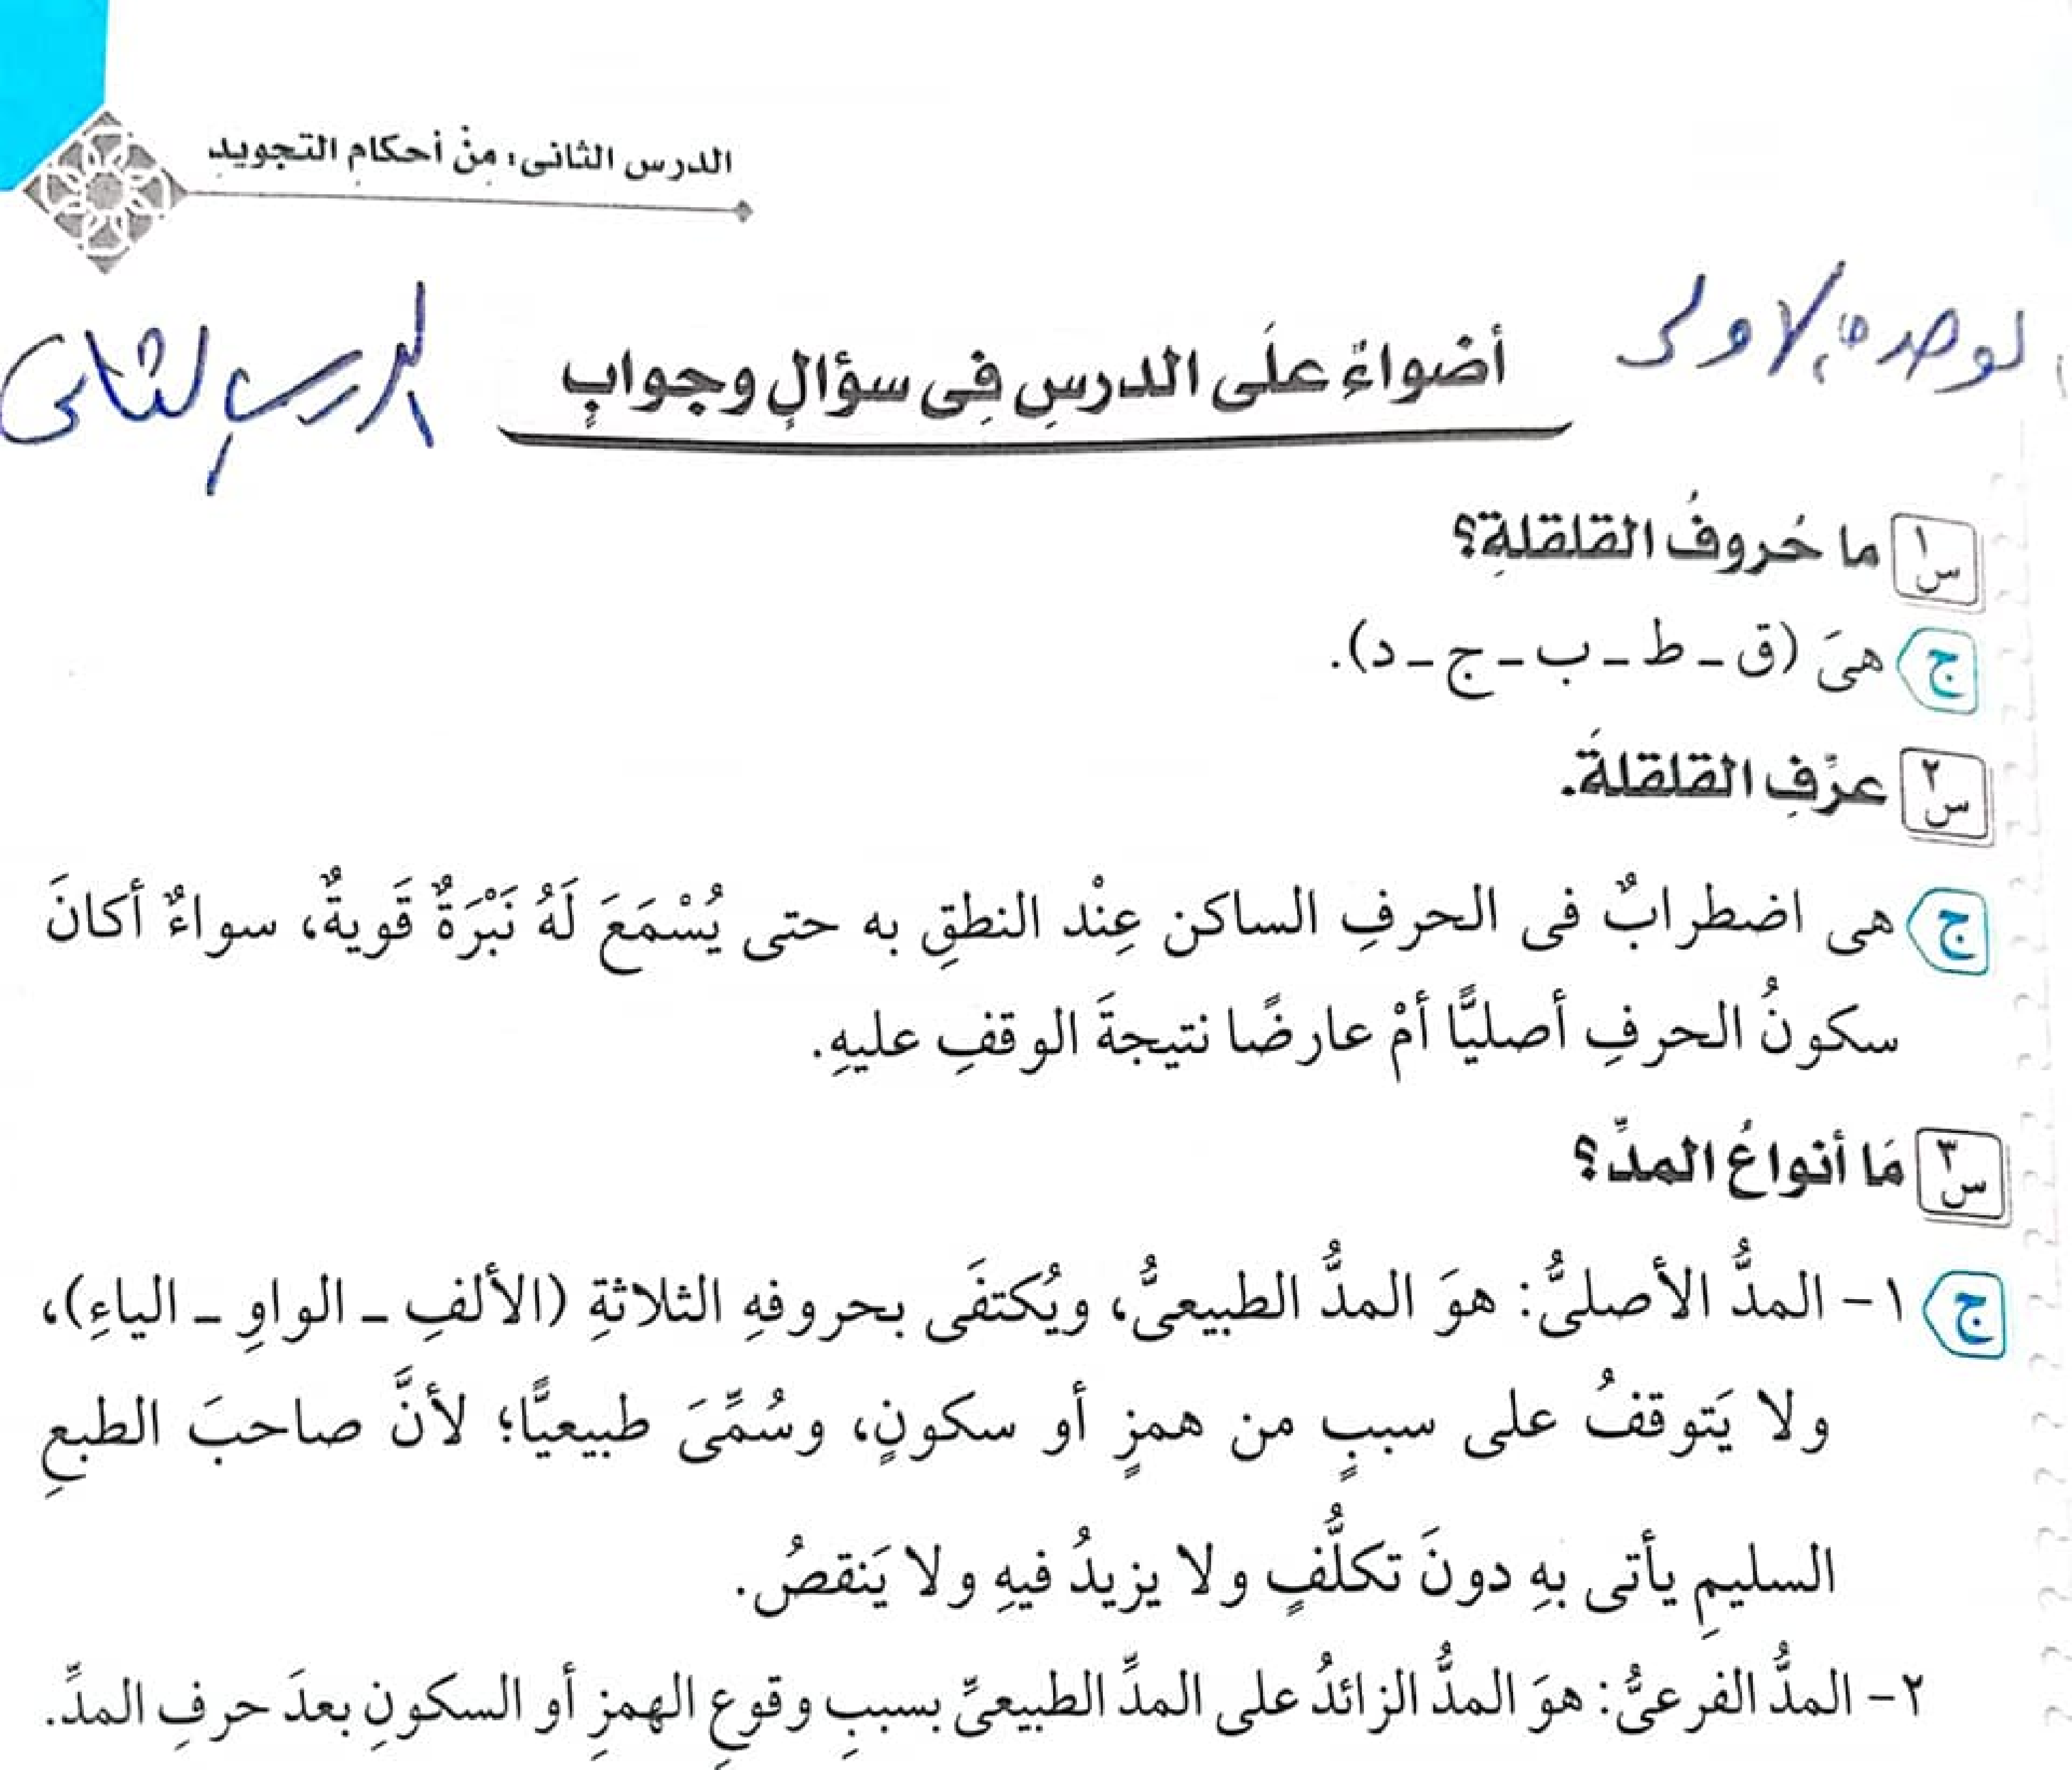 الدرس الثانى: مِنْ أحكامِ التجويدِ
الوحدة الاولى
أضواءٌ علَى الدرسِ فِى سؤالٍ وجوابٍ
الدرس الثانى
س١ ما حُروفُ القلقلةِ؟
ج هىَ (ق - ط - ب - ج - د).
س٢ عرِّفِ القلقلةَ.
ج هى اضطرابٌ فى الحرفِ الساكن عِنْد النطقِ به حتى يُسْمَعَ لَهُ نَبْرَةٌ قَويةٌ، سواءٌ أكانَ
سكونُ الحرفِ أصليًّا أمْ عارضًا نتيجةَ الوقفِ عليهِ.
س٣ مَا أنواعُ المدِّ؟
ج ١- المدُّ الأصلىُّ: هوَ المدُّ الطبيعىُّ، ويُكتفَى بحروفهِ الثلاثةِ (الألفِ - الواوِ - الياءِ)،
ولا يَتوقفُ على سببٍ من همزٍ أو سكونٍ، وسُمِّىَ طبيعيًّا؛ لأنَّ صاحبَ الطبعِ
السليمِ يأتى بهِ دونَ تكلُّفٍ ولا يزيدُ فيهِ ولا يَنقصُ.
٢- المدُّ الفرعىُّ: هوَ المدُّ الزائدُ على المدِّ الطبيعىِّ بسببِ وقوعِ الهمزِ أو السكونِ بعدَ حرفِ المدِّ.